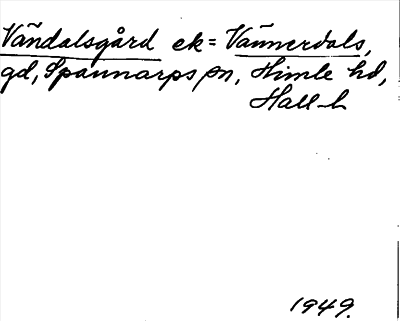 Vändalsgård ek = Vännerdals,
gd, Spannarps sn, Himle hd,
Hall-h
1949.